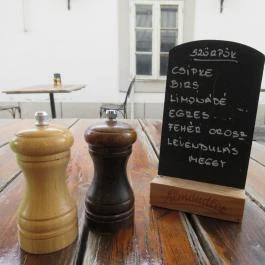 SZÖRPÖK
CSIPKE
BIRS
LIMONÁDÉ
EGRES...
FEHÉR OROSZ
LEVENDULÁS
MEGGY